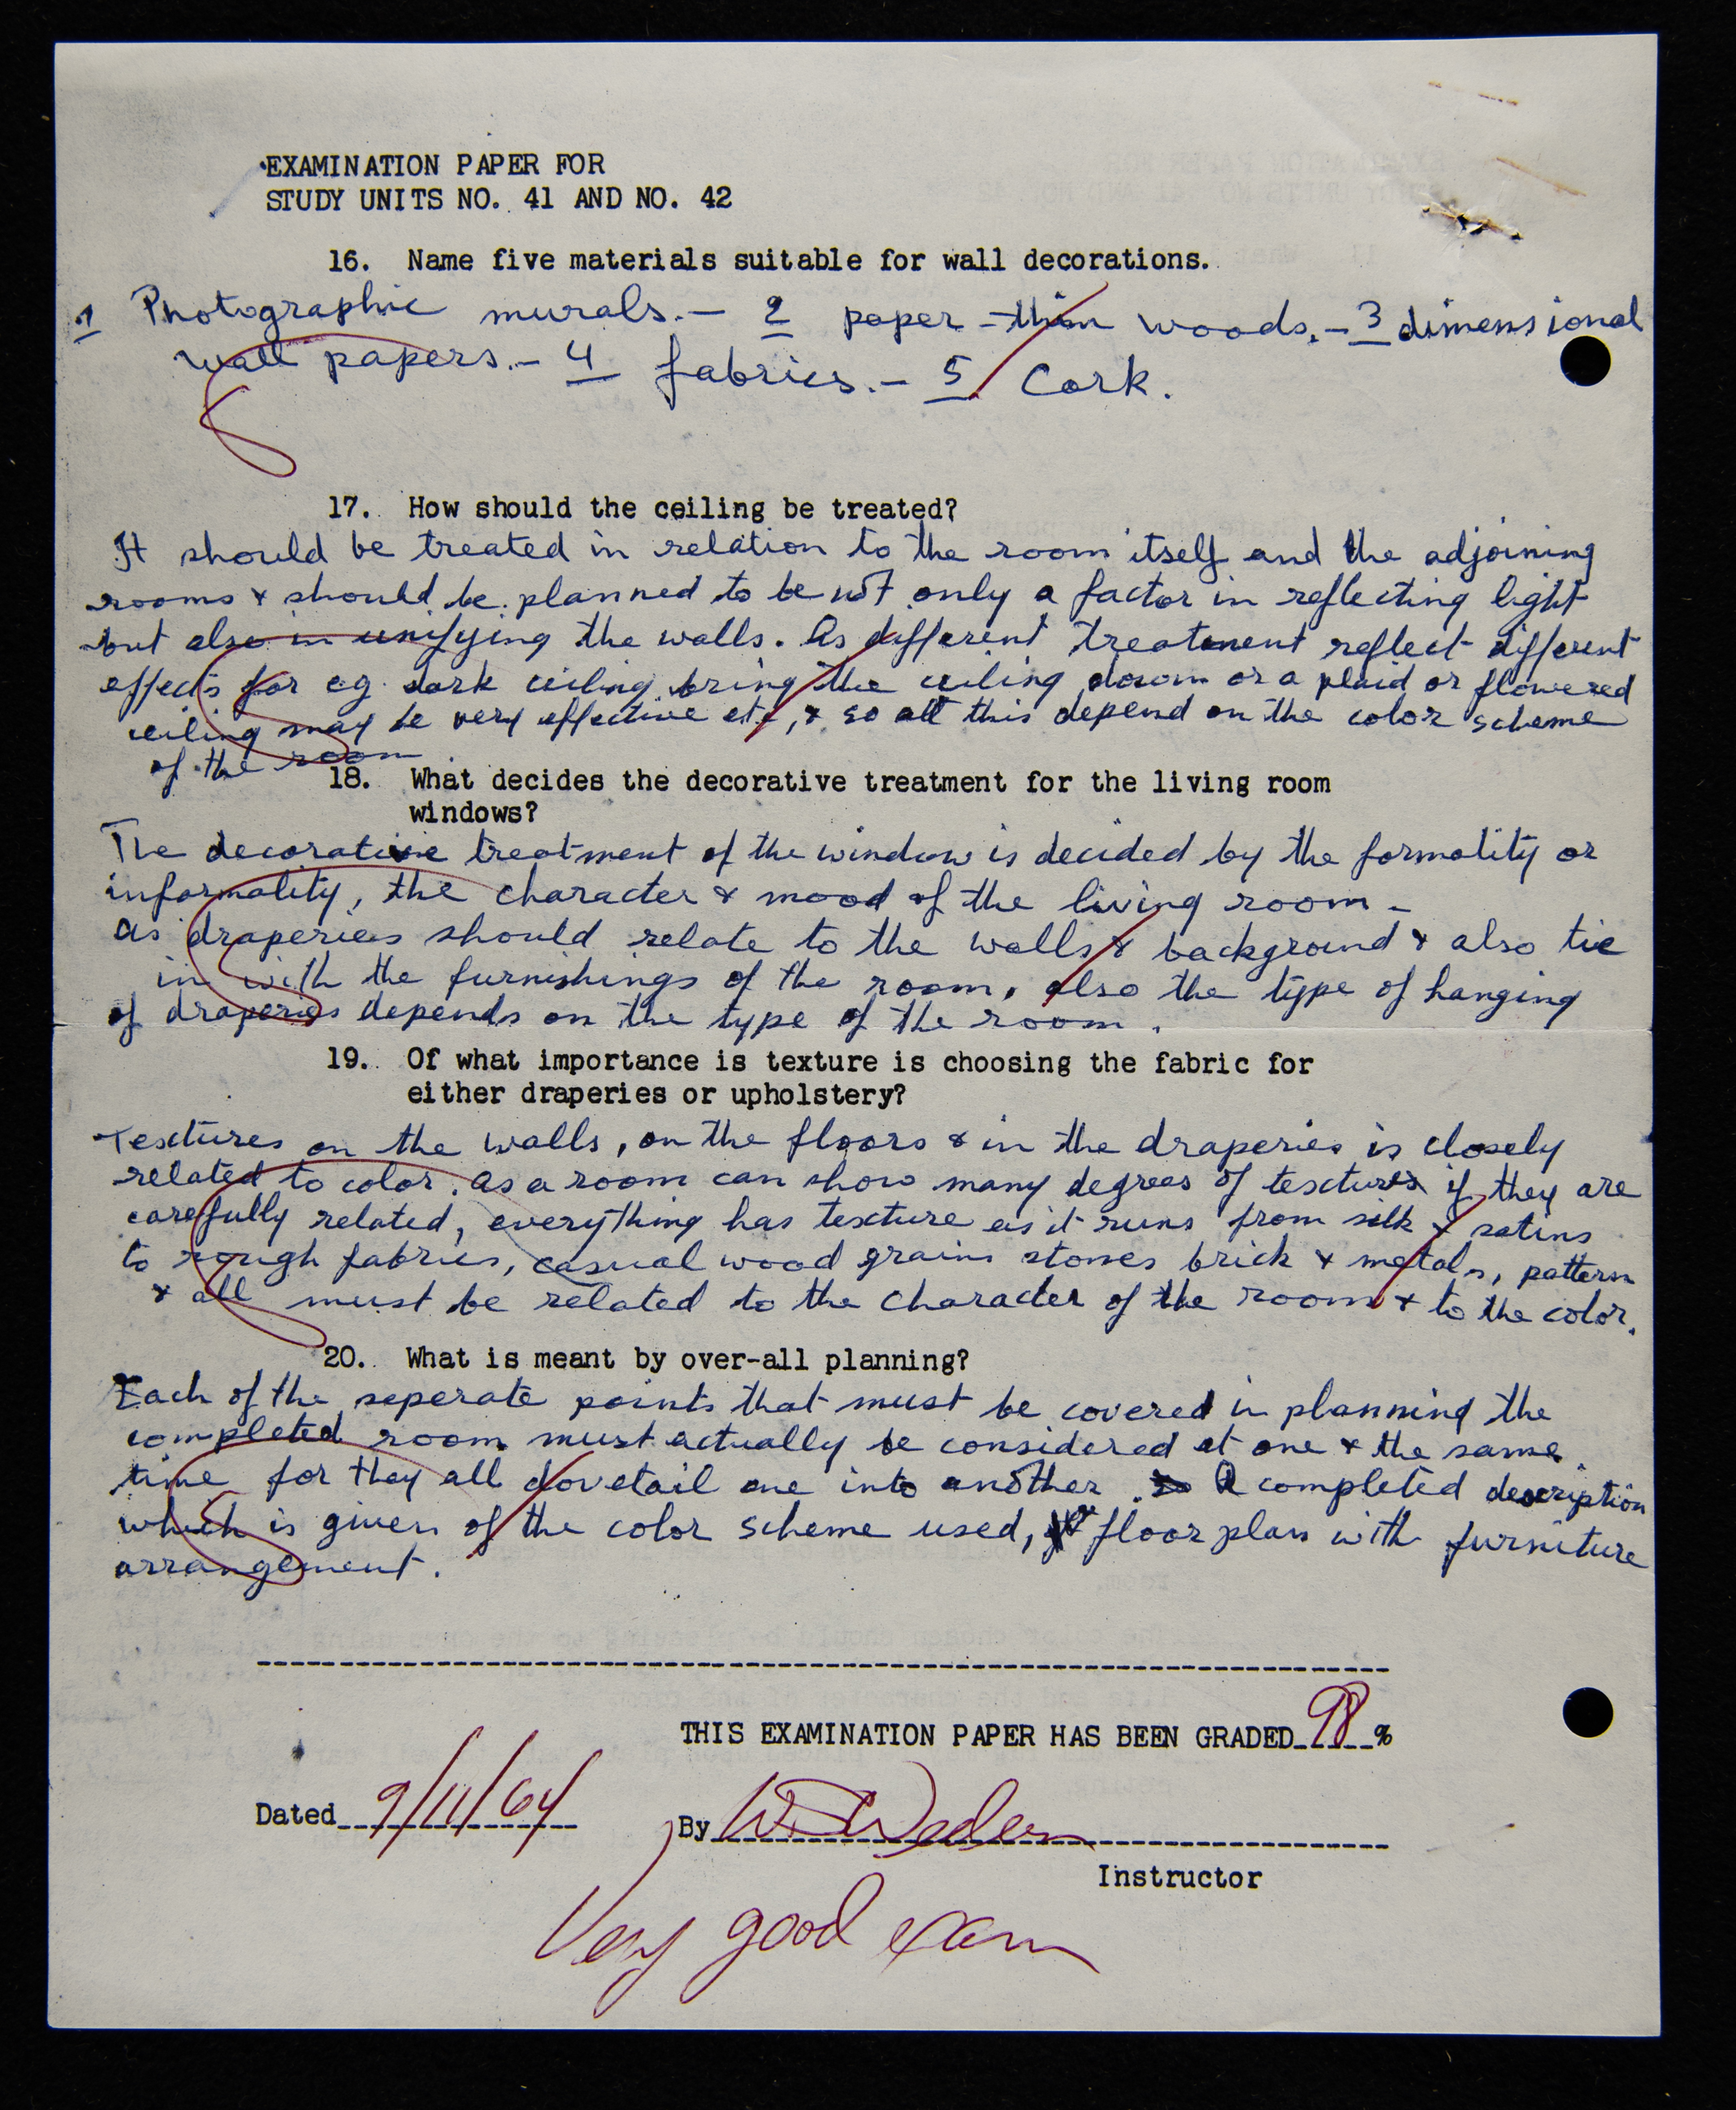 EXAMINATION PAPER FOR
STUDY UNITS NO. 41 AND NO. 42
16. Name five materials suitable for wall decorations.
1 Photographic murals. - 2 paper-thin woods. - 3 dimensional
wall papers. - 4 fabrics. - 5 Cork.
17. How should the ceiling be treated?
It should be treated in relation to the room itself and the adjoining
rooms & should be planned to be not only a factor in reflecting light
but also in unifying the walls. As different treatment reflect different
effects for eg dark ceiling bring the ceiling down or a plaid or flowered
ceiling may be very effective etc, & so all this depend on the color scheme
of the room.
18. What decides the decorative treatment for the living room
windows?
The decorative treatment of the window is decided by the formality or
informality, the character & mood of the living room -
As draperies should relate to the walls & background & also tie
in with the furnishings of the room, also the type of hanging
of draperies depends on the type of the room.
19. Of what importance is texture is choosing the fabric for
either draperies or upholstery?
Textures on the walls, on the floors & in the draperies is closely
related to color. As a room can show many degrees of textures if they are
carefully related, everything has texture as it runs from silk & satins
to rough fabrics, casual wood grains stones brick & metals, pattern
& all must be related to the character of the room & to the color.
20. What is meant by over-all planning?
Each of the seperate points that must be covered in planning the
completed room must actually be considered at one & the same
time for they all dovetail one into another. A completed description
which is given of the color scheme used, floor plan with furniture
arrangement.
THIS EXAMINATION PAPER HAS BEEN GRADED 98 %
Dated 9/11/64
By
Instructor
Very good exam